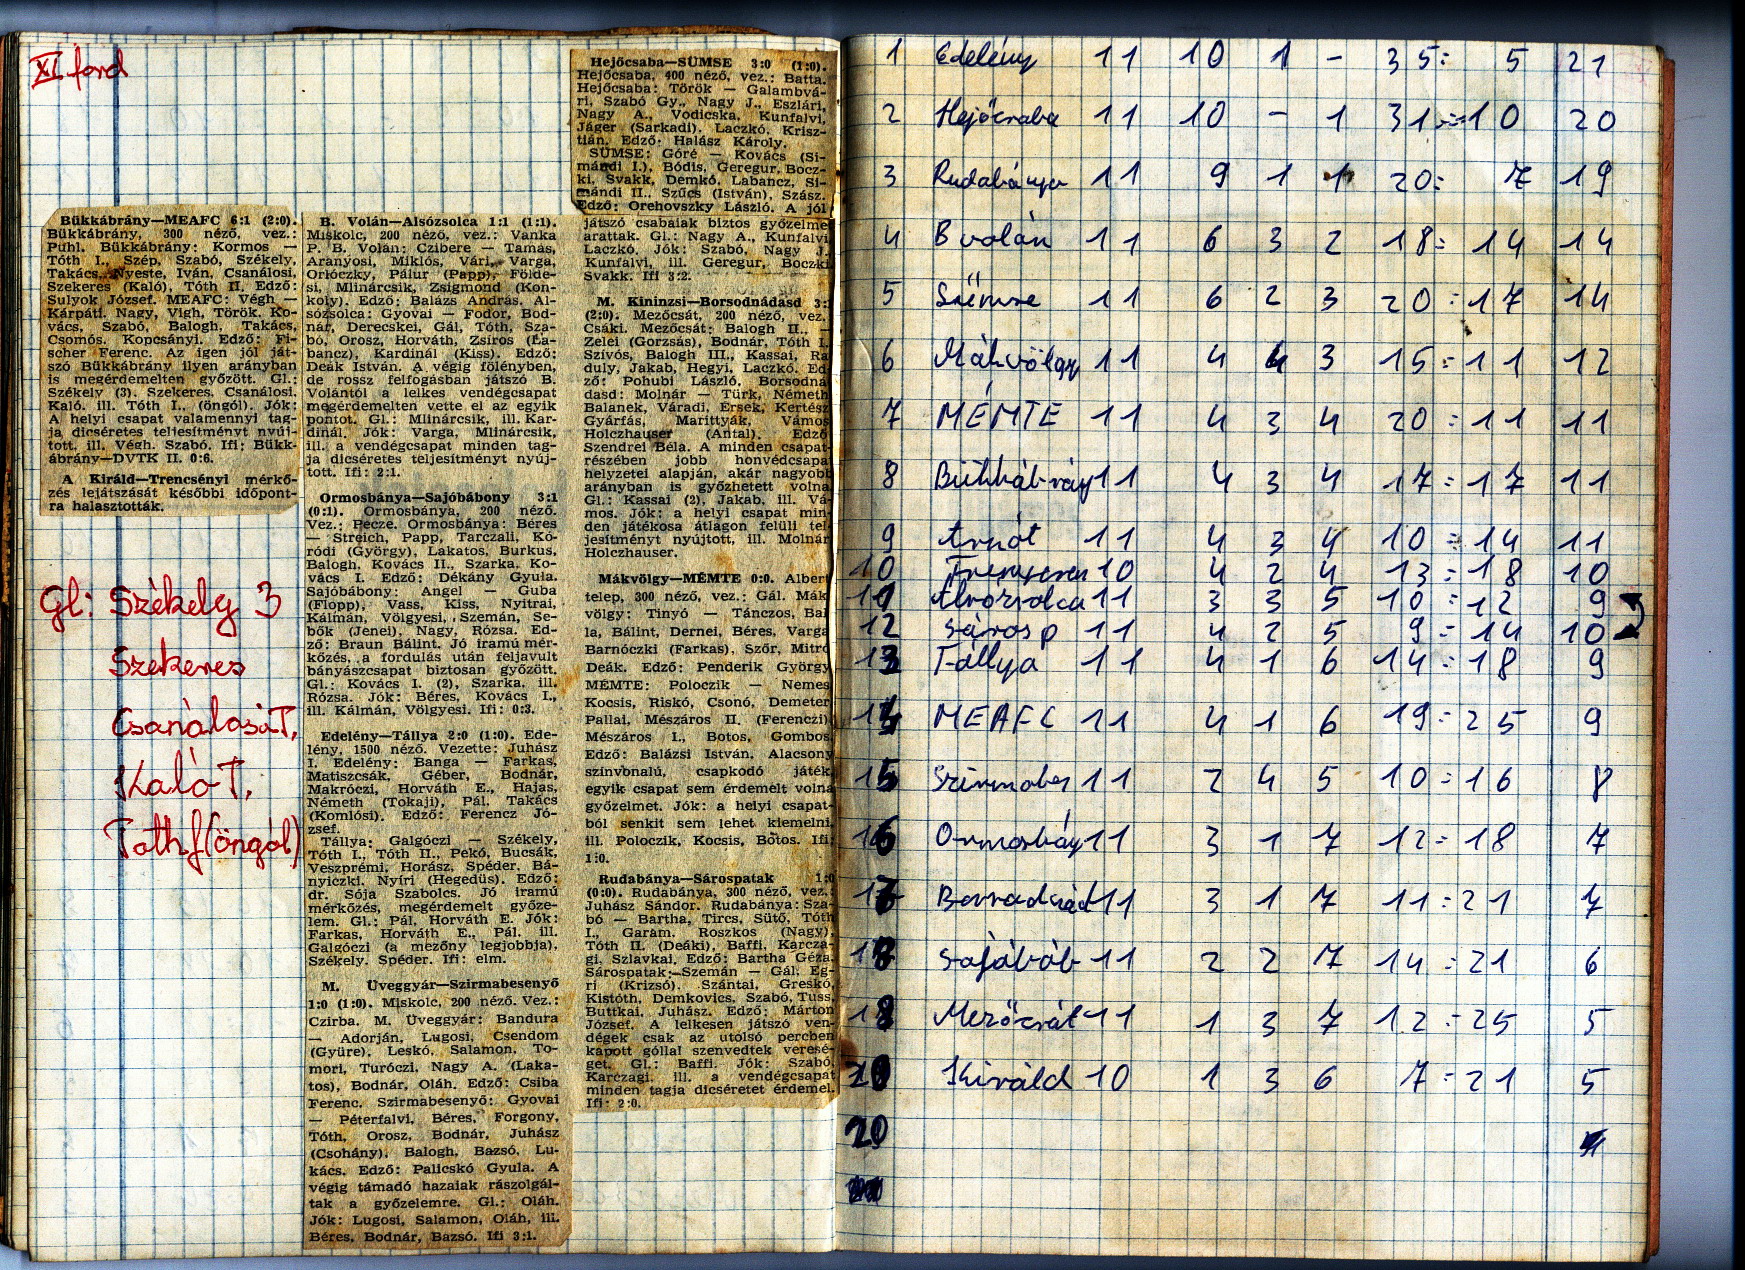 XI ford
Bükkábrány—MEAFC 6:1 (2:0).
Bükkábrány, 300 néző, vez.:
Pühl. Bükkábrány: Kormos —
Tóth I., Szép, Szabó, Székely,
Takács, Nyeste, Iván, Csanálosi,
Szekeres (Kaló), Tóth II. Edző:
Sulyok József. MEAFC: Végh —
Kárpáti, Nagy, Vigh, Török, Ko-
vács, Szabó, Balogh, Takács,
Csomós, Kopcsányi. Edző: Fi-
scher Ferenc. Az igen jól ját-
szó Bükkábrány ilyen arányban
is megérdemelten győzött. Gl.:
Székely (3), Szekeres, Csanálosi,
Kaló, ill. Tóth I., (öngól). Jók:
A helyi csapat valamennyi tag-
ja dicséretes teljesítményt nyúj-
tott, ill. Végh, Szabó. Ifi: Bükk-
ábrány—DVTK II. 0:6.
A Királd—Trencsényi mérkő-
zés lejátszását későbbi időpont-
ra halasztották.
Gl: Székely 3
Szekeres
Csanálosi T,
Kaló T,
Toth f (öngól)
B. Volán—Alsózsolca 1:1 (1:1).
Miskolc, 200 néző, vez.: Vanka
P. B. Volán: Czibere — Tamás,
Aranyosi, Miklós, Vári, Varga,
Orlóczky, Pálur (Papp), Földe-
si, Mlinárcsik, Zsigmond (Kon-
koly). Edző: Balázs András. Al-
sózsolca: Gyovai — Fodor, Bod-
nár, Derecskei, Gál, Tóth, Sza-
bó, Orosz, Horváth, Zsíros (La-
bancz), Kardinál (Kiss). Edző:
Deák István. A végig fölényben,
de rossz felfogásban játszó B.
Volántól a lelkes vendégcsapat
megérdemelten vette el az egyik
pontot. Gl.: Mlinárcsik, ill. Kar-
dinál. Jók: Varga, Mlinárcsik,
ill. a vendégcsapat minden tag-
ja dicséretes teljesítményt nyúj-
tott. Ifi: 2:1.
Ormosbánya—Sajóbábony 3:1
(0:1). Ormosbánya, 200 néző.
Vez.: Pecze. Ormosbánya: Béres
— Streich, Papp, Tarczali, Kó-
ródi (György), Lakatos, Burkus,
Balogh, Kovács II., Szarka, Ko-
vács I. Edző: Dékány Gyula.
Sajóbábony: Angel — Guba
(Flopp), Vass, Kiss, Nyitrai,
Kálmán, Völgyesi, Szemán, Se-
bők (Jenei), Nagy, Rózsa. Ed-
ző: Braun Bálint. Jó iramú mér-
kőzés, a fordulás után feljavult
bányászcsapat biztosan győzött.
Gl.: Kovács I. (2), Szarka, ill.
Rózsa. Jók: Béres, Kovács I.,
ill. Kálmán, Völgyesi. Ifi: 0:3.
Edelény—Tállya 2:0 (1:0). Ede-
lény, 1500 néző. Vezette: Juhász
I. Edelény: Banga — Farkas,
Matiszcsák, Géber, Bodnár,
Makróczi, Horváth E., Hajas,
Németh (Tokaji), Pál, Takács
(Komlósi). Edző: Ferencz Jó-
zsef.
Tállya: Galgóczi — Székely,
Tóth I., Tóth II., Pekó, Bucsák,
Veszprémi, Horász, Spéder, Bá-
nyiczki, Nyíri (Hegedüs). Edző:
dr. Sója Szabolcs. Jó iramú
mérkőzés, megérdemelt győze-
lem. Gl.: Pál, Horváth E. Jók:
Farkas, Horváth E., Pál, ill.
Galgóczi (a mezőny legjobbja),
Székely, Spéder. Ifi: elm.
M. Üveggyár—Szirmabesenyő
1:0 (1:0). Miskolc, 200 néző. Vez.:
Czirba. M. Üveggyár: Bandura
— Adorján, Lugosi, Csendom
(Gyüre), Leskó, Salamon, To-
mori, Turóczi, Nagy A. (Laka-
tos), Bodnár, Oláh. Edző: Csiba
Ferenc. Szirmabesenyő: Gyovai
— Péterfalvi, Béres, Forgony,
Tóth, Orosz, Bodnár, Juhász
(Csohány), Balogh, Bazsó, Lu-
kács. Edző: Palicskó Gyula. A
végig támadó hazaiak rászolgál-
tak a győzelemre. Gl.: Oláh.
Jók: Lugosi, Salamon, Oláh, ill.
Béres, Bodnár, Bazsó. Ifi 3:1.
Hejőcsaba—SÜMSE 3:0 (1:0).
Hejőcsaba, 400 néző, vez.: Batta.
Hejőcsaba: Török — Galambvá-
ri, Szabó Gy., Nagy J., Eszlári,
Nagy A., Vodicska, Kunfalvi,
Jáger (Sarkadi), Laczkó, Krisz-
tián. Edző: Halász Károly.
SÜMSE: Góré — Kovács (Si-
mándi I.), Bódis, Geregur, Bocz-
ki, Svakk, Demkó, Labancz, Si-
mándi II., Szűcs (István), Szász.
Edző: Orehovszky László. A jól
játszó csabaiak biztos győzelmet
arattak. Gl.: Nagy A., Kunfalvi,
Laczkó. Jók: Szabó, Nagy J.
Kunfalvi, ill. Geregur, Boczki
Svakk. Ifi 3:2.
M. Kininzsi—Borsodnádasd 3:
(2:0). Mezőcsát, 200 néző, vez.
Csáki. Mezőcsát: Balogh II., —
Zelei (Gorzsás), Bodnár, Tóth I.
Szívós, Balogh III., Kassai, Ra
duly, Jakab, Hegyi, Laczkó. Ed
ző: Pohubi László, Borsodná
dasd: Molnár — Türk, Németh
Balanek, Váradi, Érsek, Kertész
Gyárfás, Marittyák, Vámos
Holczhauser (Antal). Edző
Szendrei Béla. A minden csapat-
részében jobb honvédcsapa
helyzetei alapján, akár nagyobb
arányban is győzhetett volna
Gl.: Kassai (2), Jakab, ill. Vá-
mos. Jók: a helyi csapat min-
den játékosa átlagon felüli tel-
jesítményt nyújtott, ill. Molnár
Holczhauser.
Mákvölgy—MÉMTE 0:0. Albert
telep, 300 néző, vez.: Gál. Mák
völgy: Tinyó — Tánczos, Bal
la, Bálint, Dernei, Béres, Varga
Barnóczki (Farkas), Szőr, Mitró
Deák. Edző: Penderik György
MÉMTE: Poloczik — Nemes
Kocsis, Riskó, Csonó, Demeter
Pallai, Mészáros II. (Ferenczi)
Mészáros I., Botos, Gombos
Edző: Balázsi István. Alacsony
színvonalú, csapkodó játék
egyik csapat sem érdemelt volna
győzelmet. Jók: a helyi csapat-
ból senkit sem lehet kiemelni,
ill. Poloczik, Kocsis, Botos. Ifi
1:0.
Rudabánya—Sárospatak 1:0
(0:0). Rudabánya, 300 néző, vez.:
Juhász Sándor. Rudabánya: Sza-
bó — Bartha, Tircs, Sütő, Tóth
I., Garam, Roszkos (Nagy),
Tóth II. (Deáki), Baffi, Karcza-
gi, Szlavkai. Edző: Bartha Géza.
Sárospatak: Szemán — Gál, Eg-
ri (Krizsó), Szántai, Greskó,
Kistóth, Demkovics, Szabó, Tuss,
Buttkai, Juhász. Edző: Márton
József. A lelkesen játszó ven-
dégek csak az utolsó percben
kapott góllal szenvedtek veresé-
get. Gl.: Baffi. Jók: Szabó,
Karczagi, ill. a vendégcsapat
minden tagja dicséretet érdemel.
Ifi: 2:0.
1 Edelény 11 10 1 - 35: 5 21
2 Hejőcsaba 11 10 - 1 31:10 20
3 Rudabánya 11 9 1 1 20: 7 19
4 B volán 11 6 3 2 18:14 14
5 Sümse 11 6 2 3 20:17 14
6 Mákvölgy 11 4 4 3 15:11 12
7 MÉMTE 11 4 3 4 20:11 11
8 Bükkábrány 11 4 3 4 17:17 11
9 Arnót 11 4 3 4 10:14 11
10 Trencsen 10 4 2 4 13:18 10
11 Alsózsolca 11 3 3 5 10:12 9
12 Sárosp 11 4 2 5 9:14 10
13 Tállya 11 4 1 6 14:18 9
14 MEAFC 11 4 1 6 19:25 9
15 Szirmabes 11 2 4 5 10:16 8
16 Ormosbány 11 3 1 7 12:18 7
17 Borsodnád 11 3 1 7 11:21 7
18 Sajóbáb 11 2 2 7 14:21 6
Mezőcsát 11 1 3 7 12:25 5
Királd 10 1 3 6 7:21 5
20